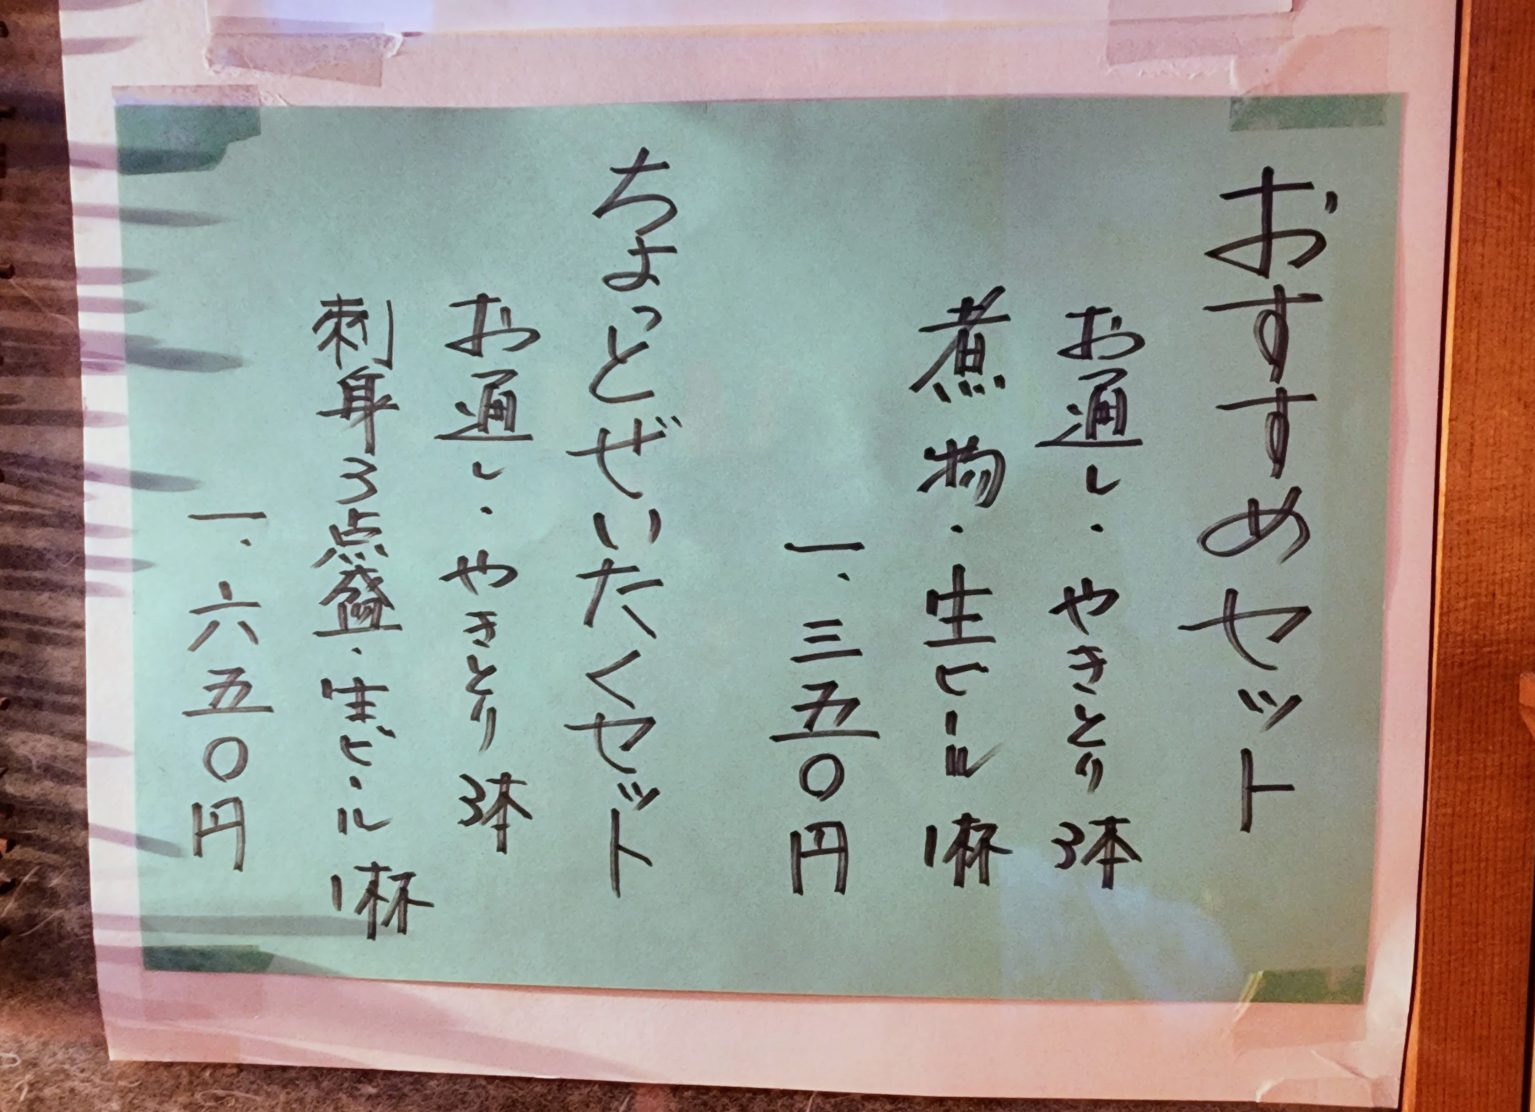 おすすめセット
お通し・やきとり3本
煮物・生ビール1杯
一、三五〇円
ちょっとぜいたくセット
お通し・やきとり3本
刺身3点盛・生ビール1杯
一、六五〇円